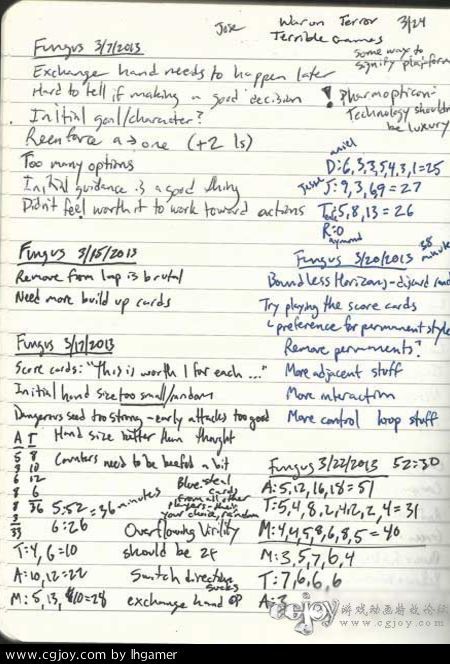 Jose
War on Terror 3/24
Terrible Games
Fungus 3/7/2013
some way to
signify playform
Exchange hand needs to happen later
Hard to tell if making a good decision
! Pharmopticon-
Technology should
be luxury
Initial goal/character?
Reenforce a → one (+2 1s)
Too many options
D:6,3,3,5,4,3,1=25
Initial guidance is a good thing
J:9,3,6,9=27
Didn't feel worth it to work toward actions
T:5,8,13=26
R:0
Fungus 3/15/2013
Remove from loop is brutal
Need more build up cards
Fungus 3/20/2013 38 minutes
Boundless Horizons - discard
Try playing the score cards
preference for permanent style
Remove permanents?
More adjacent stuff
More interaction
More control loop stuff
Fungus 3/17/2013
Score cards: "this is worth 1 for each ..."
Initial hand size too small/random
Dangerous seed too strong - early attacks too good
Hand size better than thought
Counters need to be beefed a bit
A T
5 8
8 10
6 12
8 6
36
33
5:52 = 36 minutes
6:26
Blue-steal
cards
from all other
players - their
your choice, random
Overflowing Virility
should be 2f
T:4,6=10
A:10,12=22
Switch direction
sucks
exchange hand OP
Fungus 3/22/2013 52:30
A:5,12,16,18=51
T:5,4,8,2,4,2,2,4=31
M:4,4,5,8,6,8,5=40
M:3,5,7,6,4
T:7,6,6,6
A:
cgjoy 游戏动画特效论坛
www.cgjoy.com
www.cgjoy.com by lhgamer